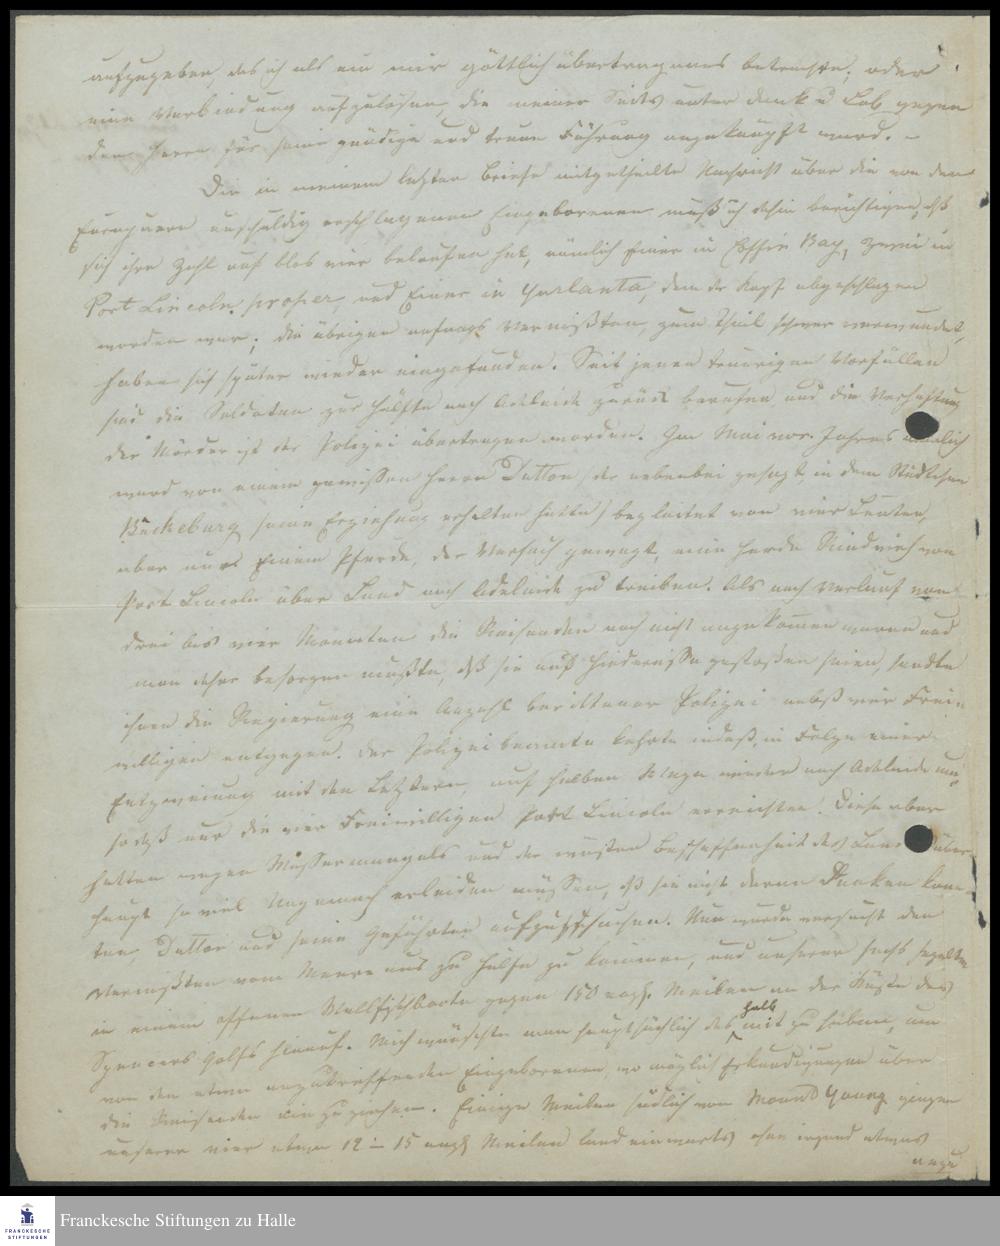 aufzugeben, das ich als ein mir göttlich übertragenes betrachte; oder
eine Verbindung aufzulösen, die meiner Seits unter Dank u Lob gegen
den Herrn für seine gnädige und treue Führung angeknüpft ward. –
Die in meinem letzten Briefe mitgetheilte Nachricht über die von den
Europäern unschuldig erschlagenen Eingeborenen muß ich dahin berichtigen, dß
sich ihre Zahl auf blos vier belaufen hat, nämlich Einer in Coffin Bay, zwei in
Port Lincoln proper, und Einer in Yarlanta, dem der Kopf abgeschlagen
worden war; die übrigen anfangs Vermißten, zum Theil schwer verwundet,
haben sich später wieder eingefunden. Seit jenen traurigen Vorfällen
sind die Soldaten zur Hälfte nach Adelaide zurück berufen und die Verhaftung
der Mörder ist der Polizei übertragen worden. Im Mai vor. Jahres nämlich
ward von einem gewissen Herrn Dutton (der nebenbei gesagt, in dem Städtchen
Bückeburg seine Erziehung erhalten hatte) begleitet von vier Leuten,
aber nur Einem Pferde, der Versuch gewagt, eine Herde Rindvieh von
Port Lincoln über Land nach Adelaide zu treiben. Als nach Verlauf von
drei bis vier Monaten die Reisenden noch nicht angekommen waren und
man daher besorgen mußte, dß sie auf Hindernisse gestoßen seien, sandte
ihnen die Regierung eine Anzahl berittener Polizei nebst vier Frei-
willigen entgegen. Der Polizeibeamte kehrte indeß, in Folge einer
Entzweiung mit den Letztern, auf halben Wege wieder nach Adelaide um,
so dß nur die vier Freiwilligen Port Lincoln erreichten. Diese aber
hatten wegen Wassermangels und der wüsten Beschaffenheit des Landes über-
haupt so viel Ungemach erleiden müssen, dß sie nicht daran denken konn-
ten, Dutton und seine Gefährten aufzusuchen. Nun wurde versucht den
Vermißten vom Meere aus zu Hülfe zu kommen, und unserer sechs segelten
in einem offenen Wallfischboote gegen 150 engl. Meilen an der Küste des
Spencers Golfs hinauf. Mich wünschte man hauptsächlich deshalb mit zu haben, um
von den etwa anzutreffenden Eingeborenen wo möglich Erkundigungen über
die Reisenden einzuziehen. Einige Meilen südlich von Mount Young gingen
unserer vier etwa 12 – 15 engl. Meilen landeinwärts ohne irgend etwas
Franckesche Stiftungen zu Halle
FRANCKESCHE
STIFTUNGEN